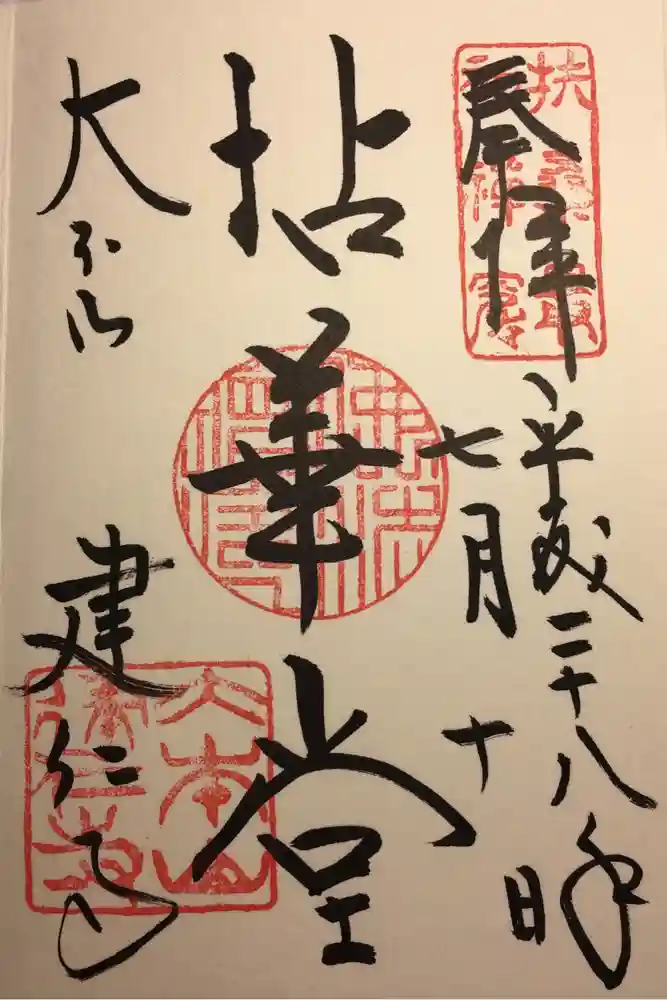 扶桑最
初禅窟
奉拝
平成二十八年
七月十日
拈華堂
佛法
僧寶
大本山
建仁寺
大本山
建仁寺